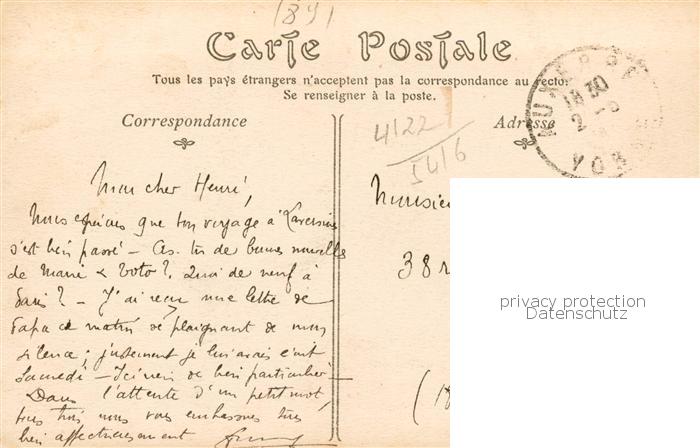 (891
Carte Postale
Tous les pays étrangers n'acceptent pas la correspondance au recto.
Se renseigner à la poste.
Correspondance
Adresse
AUXERRE
18 30
YONNE
4122
5416
Mon cher Henri,
Nous espérons que ton voyage à
s'est bien passé – As-tu de bonnes nouvelles
de Marie & Toto ? Quoi de neuf à
Paris ? – J'ai reçu une lettre de
Papa ce matin se plaignant de mon
silence ; justement je lui avais écrit
Samedi – Ici rien de bien particulier –
Dans l'attente d'un petit mot,
tous trois nous vous embrassons très
bien affectueusement
Monsieur
38 r
privacy protection
Datenschutz